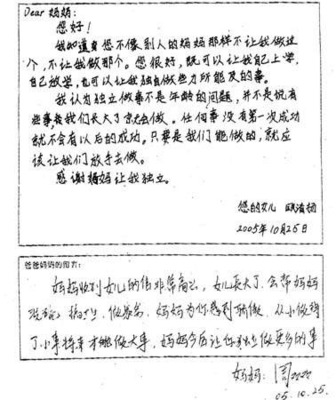 Dear 妈妈:
您好!
我知道身您不像别人的妈妈那样不让我做这
个,不让我做那个。您很好,既可以让我自己上学,
自己放学,也可以让我独自做些力所能及的事。
我认为独立做事不是年龄的问题,并不是说有
些事我们长大了就会做。任何事没有第一次成功
就不会有以后的成功。只要是我们能做的,就应
该让我们放手去做。
感谢妈妈让我独立。
您的女儿
2005年10月25日
爸爸妈妈的留言:
妈妈收到女儿的信非常高兴,女儿长大了,会帮妈妈
洗碗、做
妈妈为你感到骄傲,从小做
了小事将来才能做大事,妈妈今后让你独立做更多的事
妈妈:周
05.10.25.